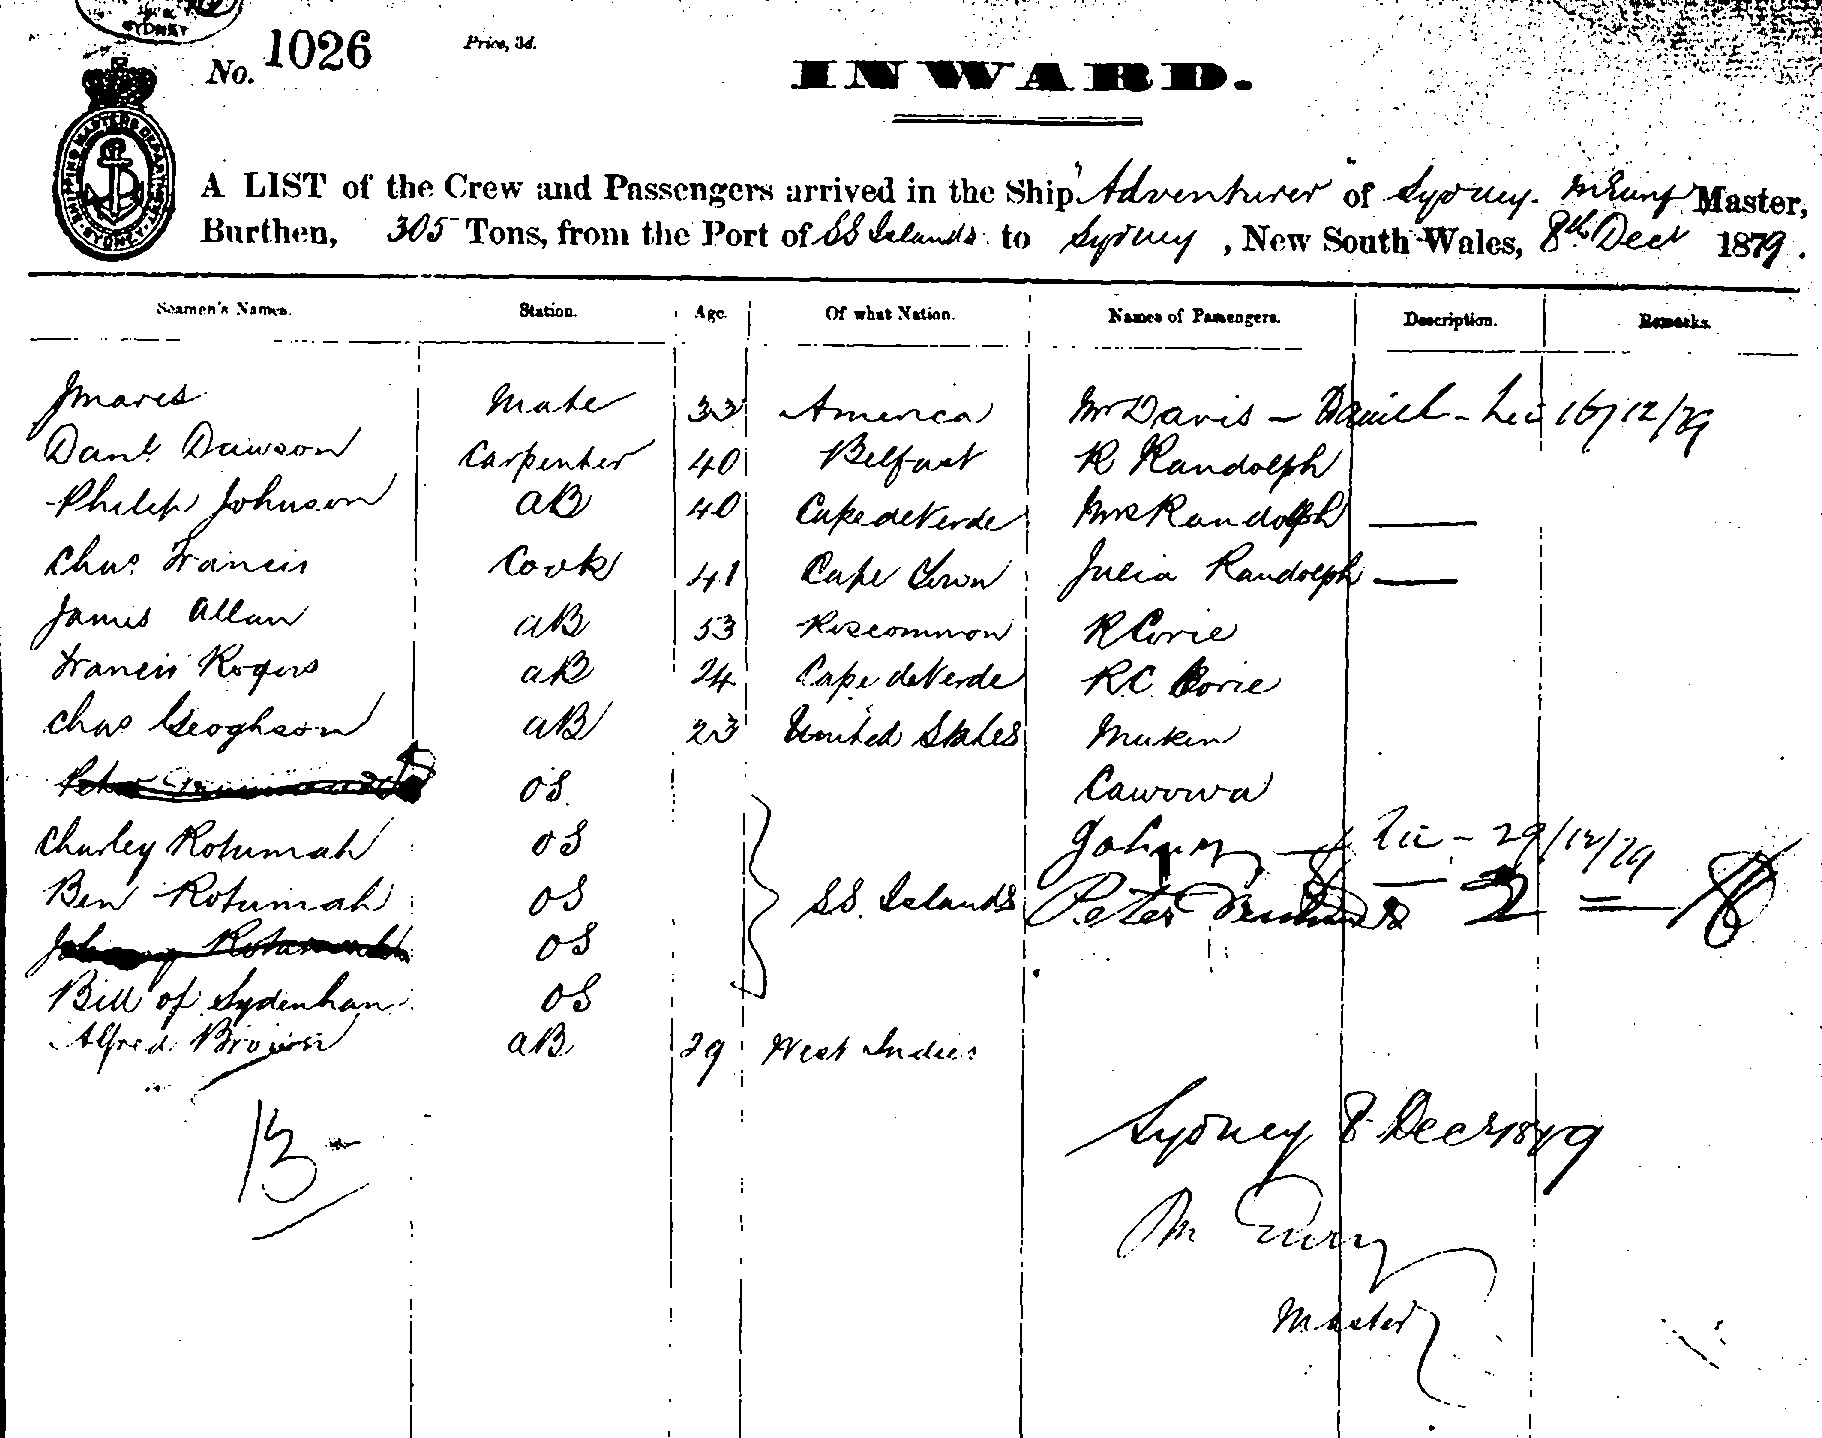 SYDNEY
No. 1026
Price, 3d.
INWARD.
SHIPPING MASTERS DEPARTMENT SYDNEY
A LIST of the Crew and Passengers arrived in the Ship "Adventurer" of Sydney. Master,
Burthen, 305 Tons, from the Port of SS Islands to Sydney, New South Wales, 8th Decr 1879.
Seamen's Names. Station. Age. Of what Nation. Names of Passengers. Description. Remarks.
Mate 33 America Mr Davis - Daniel - 16/12/79
Danl. Dawson Carpenter 40 Belfast R Randolph
Philip Johnson AB 40 Cape de Verde Mrs Randolph —
Chas. Francis Cook 41 Cape Town Julia Randolph —
James Allan AB 53 Roscommon R Corie
Francis Rogers AB 24 Cape de Verde R.C. Corie
Chas Geoghson AB 23 United States Muken
OS Cawowa
Charley Rotumah OS Johnny 29/12/79
Ben Rotumah OS SS. Islands Peter 2 =
Johnny Rotumah OS
Bill of Sydenham OS
Alfred Brown AB 29 West Indies
13
Sydney 8 Decr 1879
M
Master